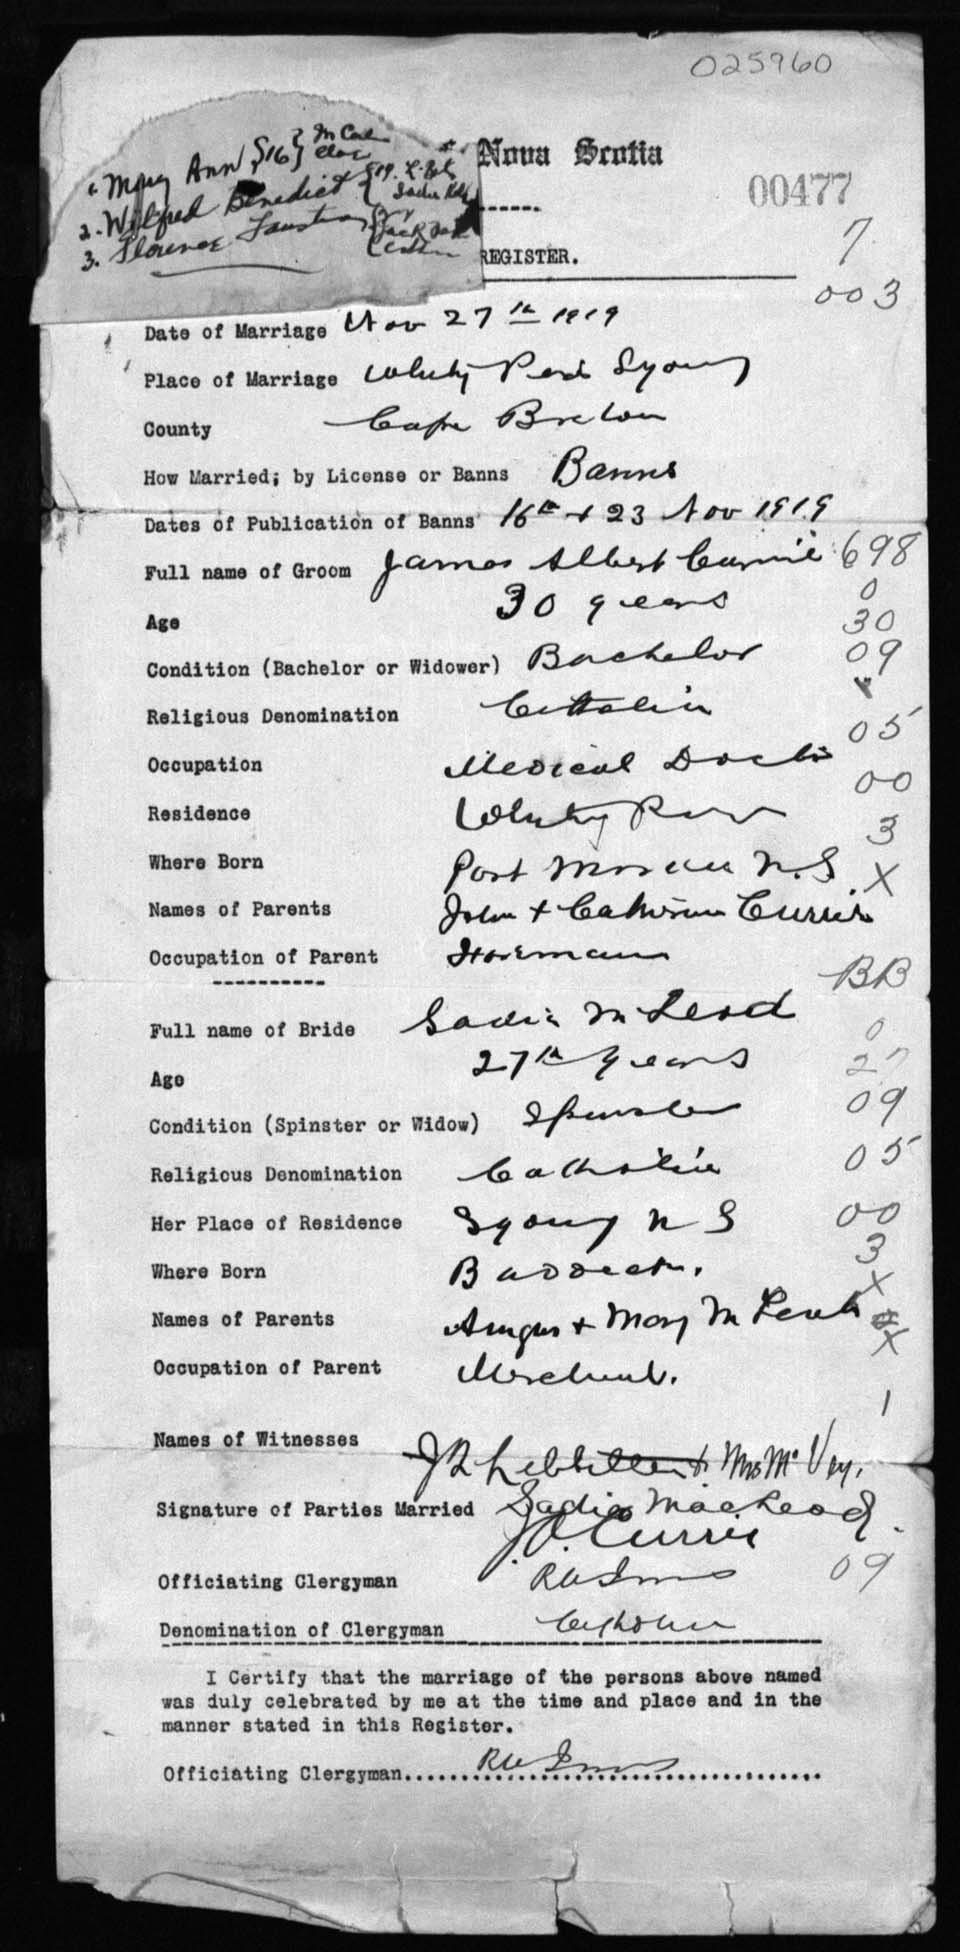 025960
Nova Scotia
00477
1. Mary Ann
2. Wilfred Benedict
3. Florence
REGISTER.
7
003
Date of Marriage Nov 27th 1919
Place of Marriage Whitney Pier Sydney
County Cape Breton
How Married; by License or Banns Banns
Dates of Publication of Banns 16th + 23 Nov 1919
Full name of Groom James Albert Currie 698
0
Age 30 years 30
Condition (Bachelor or Widower) Bachelor 09
Religious Denomination Catholic 05
Occupation Medical Doctor 00
Residence Whitney Pier 3
Where Born Port Morien N.S. X
Names of Parents John + Catherine Currie
Occupation of Parent BB
Full name of Bride Sadie McLeod 0
Age 27th years 27
Condition (Spinster or Widow) Spinster 09
Religious Denomination Catholic 05
Her Place of Residence Sydney N S 00
3
Where Born Baddeck. X
Names of Parents Angus + Mary McLeod X
Occupation of Parent Merchant. 1
Names of Witnesses + Mrs McVey.
Signature of Parties Married Sadie MacLeod.
J.A. Currie
Officiating Clergyman 09
Denomination of Clergyman Catholic
I Certify that the marriage of the persons above named
was duly celebrated by me at the time and place and in the
manner stated in this Register.
Officiating Clergyman